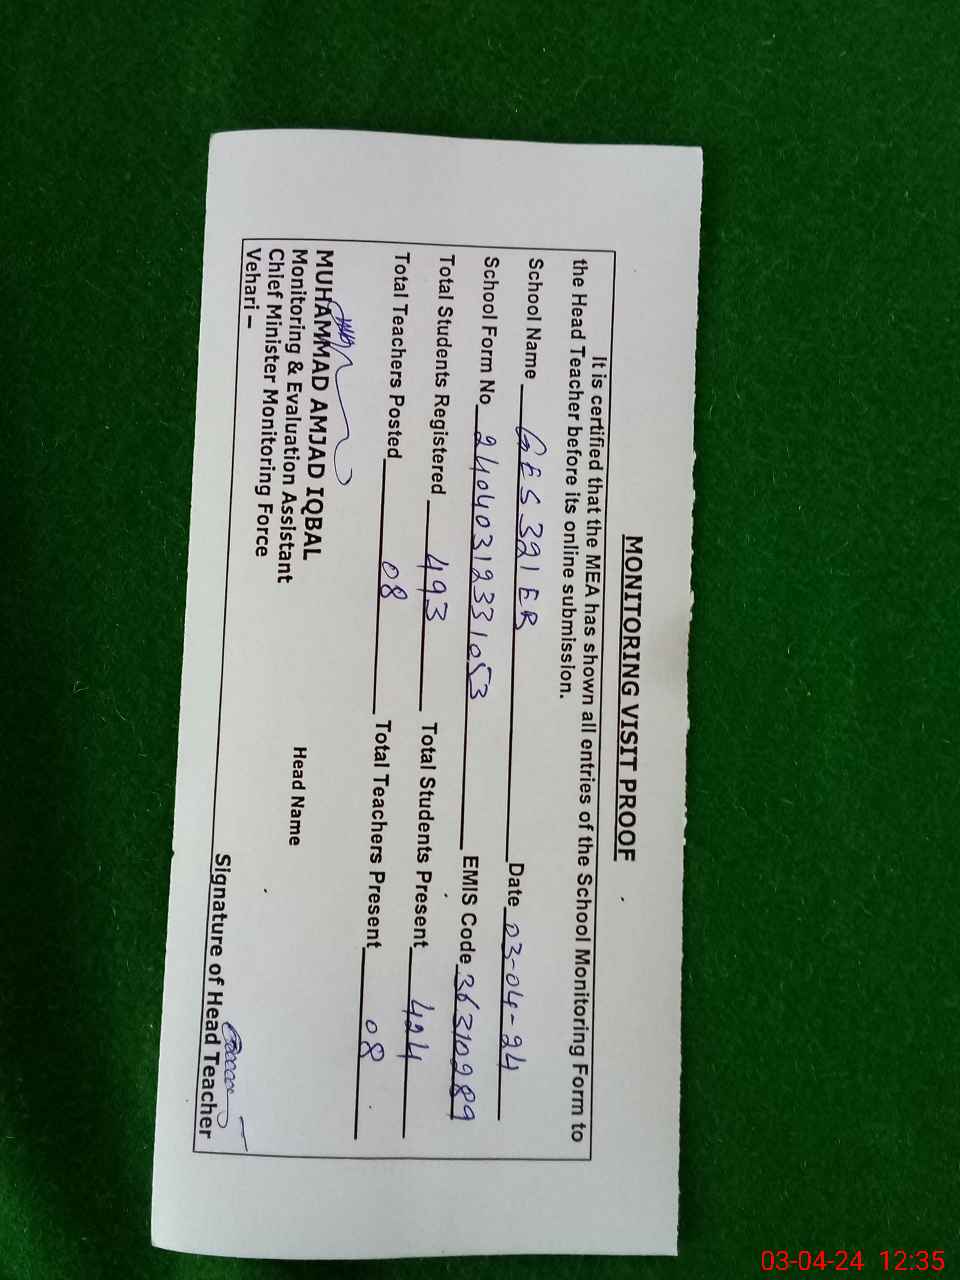 MONITORING VISIT PROOF
It is certified that the MEA has shown all entries of the School Monitoring Form to
the Head Teacher before its online submission.
School Name GES 321 EB Date 03-04-24
School Form No 24040312331053 EMIS Code 36310289
Total Students Registered 493 Total Students Present 424
Total Teachers Posted 08 Total Teachers Present 08
MUHAMMAD AMJAD IQBAL
Monitoring & Evaluation Assistant Head Name
Chief Minister Monitoring Force
Vehari –
Signature of Head Teacher
03-04-24 12:35